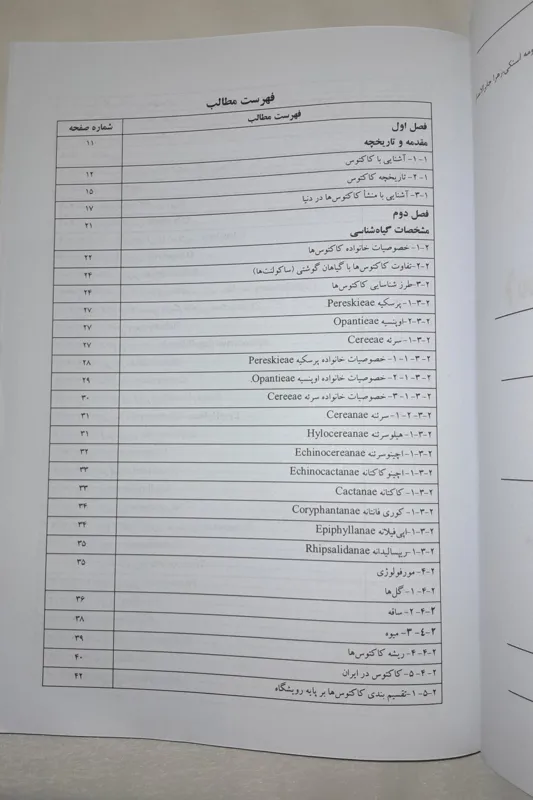 فهرست مطالب
فهرست مطالب شماره صفحه
فصل اول
مقدمه و تاریخچه ۱۱
۱-۱- آشنایی با کاکتوس
۱-۲- تاریخچه کاکتوس ۱۲
۱-۳- آشنایی با منشأ کاکتوس‌ها در دنیا ۱۵
فصل دوم ۱۷
مشخصات گیاه‌شناسی ۲۱
۲-۱- خصوصیات خانواده کاکتوس‌ها ۲۲
۲-۲- تفاوت کاکتوس‌ها با گیاهان گوشتی (ساکولنت‌ها) ۲۴
۲-۳- طرز شناسایی کاکتوس‌ها ۲۴
۲-۳-۱- پرسکیه Pereskieae ۲۷
۲-۳-۲- اوپنسیه Opantieae ۲۷
۲-۳-۱- سرئه Cereeae ۲۷
۲-۳-۱-۱- خصوصیات خانواده پرسکیه Pereskieae ۲۸
۲-۳-۱-۲- خصوصیات خانواده اوپنسیه Opantieae. ۲۹
۲-۳-۱-۳- خصوصیات خانواده سرئه Cereeae ۳۰
۲-۳-۱-۲-۱- سرئنه Cereanae ۳۱
۲-۳-۱- هیلوسرئنه Hylocereanae ۳۱
۲-۳-۱- اچینوسرئنه Echinocereanae ۳۲
۲-۳-۱- اچینوکاکتانه Echinocactanae ۳۳
۲-۳-۱- کاکتانه Cactanae ۳۳
۲-۳-۱- کوری فانتانه Coryphantanae ۳۴
۲-۳-۱- اپی‌فیلانه Epiphyllanae ۳۴
۲-۳-۱- ریپسالیدانه Rhipsalidanae ۳۵
۲-۴- مورفولوژی ۳۵
۲-۴-۱- گل‌ها
۲-۴-۲- ساقه ۳۶
۲-۴-۳- میوه ۳۸
۲-۴-۴- ریشه کاکتوس‌ها ۳۹
۲-۴-۵- کاکتوس در ایران ۴۰
۲-۵-۱- تقسیم بندی کاکتوس‌ها بر پایه رویشگاه ۴۲